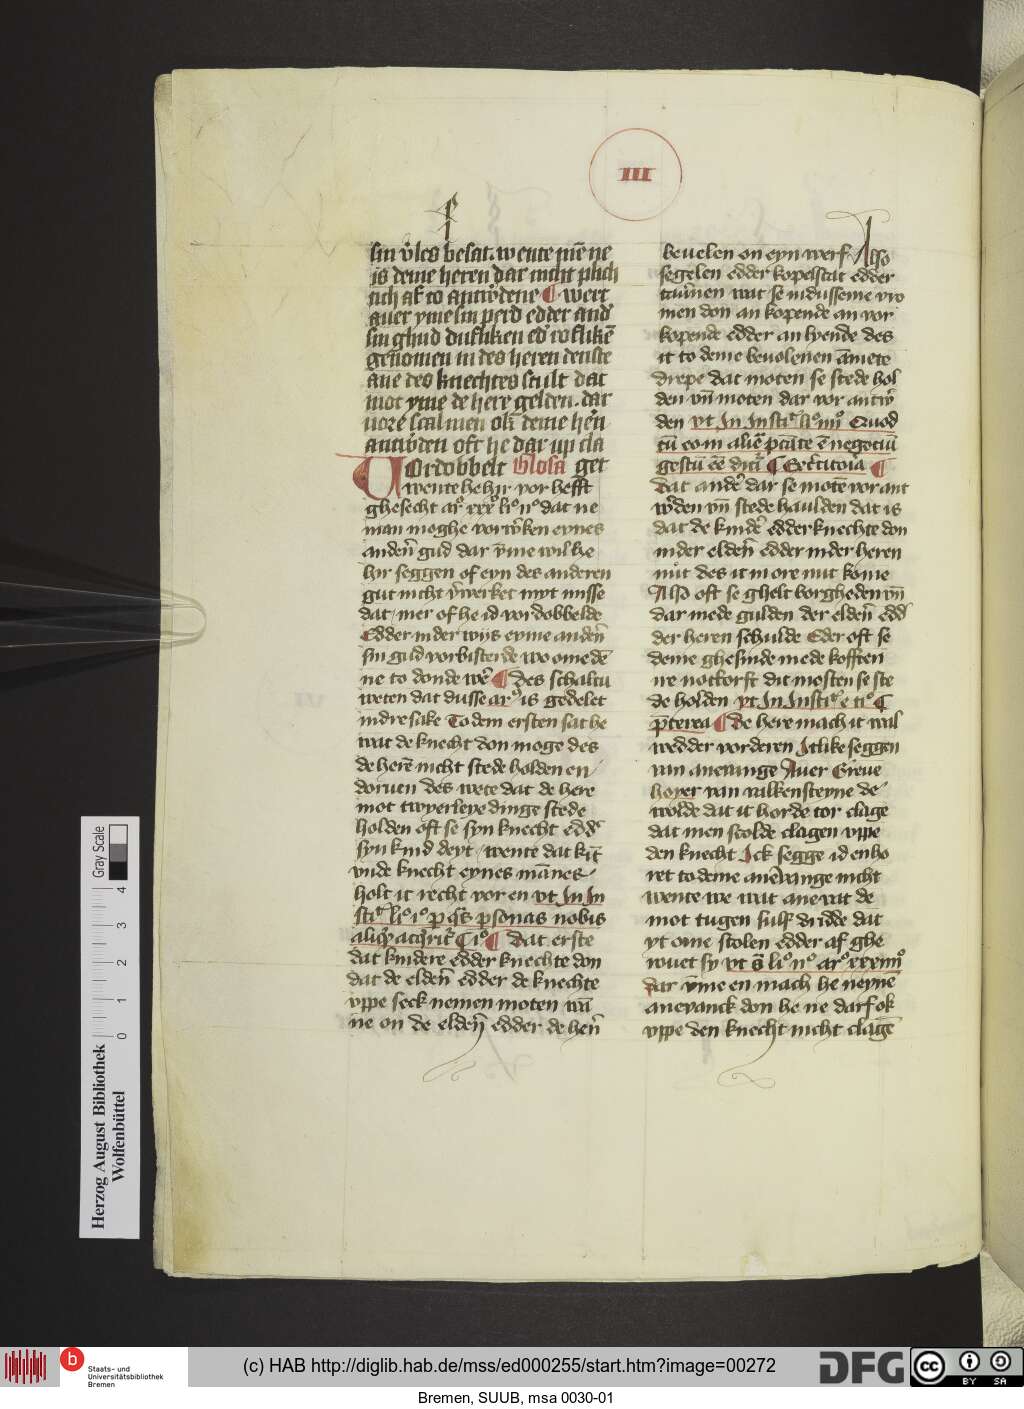 III
sin v̓les besat. wente mē ne
is deme heren dar nicht plich
tich af to antw̓dene ¶ wert
auer yme sin perd edder and̓
sin ghud dufliken ed̓ roflikē
genomen in des heren denste
ane des knechtes scult dat
mot yme de here gelden. dar
vore scal men ok deme hēn
antw̓den oft he dar up cla
Vordobbelt Glosa get
wente he hir vor hefft
ghesecht ar° xxx° k° n° dat ne
man moghe vorw̓ken eynes
andeñ gud dar v̄me wil he
hir seggen of eyn des anderen
gut nicht v̓werket myt misse
dat, mer of he id vordobbelde
Edder in der wijs eyme andeñ
sin gud vorbisterde wo ome dē
ne to donde wē ¶ des schaltu
weten dat dusse ar° is gedelet
in dre sake To dem ersten sat he
wat de knecht don moge des
de herē nicht stede holden en
doruen des wete dat de here
mot twyerleye dinge stede
holden oft se syn knecht edd̓
syn kind deyt, wente dat kīt
vnde knecht eynes mānes
holt it recht vor en vt In In
stit̓ li° i° p q̄s psonas nobis
aliq̓ acq̓rit̓ ¶ i° ¶ Dat erste
dat kindere edder knechte don
dat de eldeñ edder de knechte
vppe seck nemen moten wā
ne on de eldeñ edder de heñ
beuelen on eyn werf Also
segelen edder kopesstat edder
tauernen wat se in dusseme vro
men don an kopende an vor
kopende edder an lyende des
it to deme beuolenen āmete
drepe dat moten se stede hol
den vn̄ moten dar vor antw̓
den vt In Instit̓ li° iiii° Quod
cū eo in aliē ptāte ē negociū
gestū eē dicit̓ ¶ Exercitoria ¶
dat ander dar se motē vor ant
w̓den vn̄ stede haulden dat is
dat de kinder edder knechte don
in der eldeñ edder in der heren
nůt des it in ore nut kome
Also oft se ghelt borgheden vn̄
dar mede gulden der eldeñ edd̓
der heren schulde Eder oft se
deme ghesinde mede kofften
ne notdorft dit mosten se ste
de holden vt In Instit̓ e ti° ¶
p̄terea ¶ de here mach it wal
wedder vorderen Itlike seggen
van aneuange Auer Greue
hoyer van valkensteyne de
wolde dat it horde tor clage
dat men scolde clagen vppe
den knecht Ick segge id enho
ret to deme anēvange nicht
wente we wat anevat de
mot tugen sulf dridde dat
yt ome stolen edder af ghe
rouet sy vt s̄ li° n° ar° xxxiiii°
dar v̄me en mach he neynē
anevanck don he ne darf ok
vppe den knecht nicht clagē
Gray Scale
4
3
2
1
0
Herzog August Bibliothek
Wolfenbüttel
b
Staats- und
Universitätsbibliothek
Bremen
(c) HAB http://diglib.hab.de/mss/ed000255/start.htm?image=00272
DFG
cc
BY SA
Bremen, SUUB, msa 0030-01